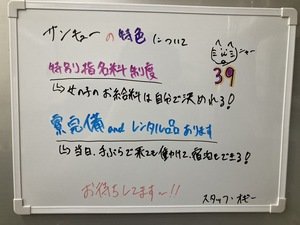 サンキューの特色について
シャー
39
特別指名料制度
↳女の子のお給料は自分で決めれる!
寮完備 and レンタル品あります
↳当日、手ぶらで来ても働けて、宿泊もできる!
お待ちしてます〜!!
スタッフ・